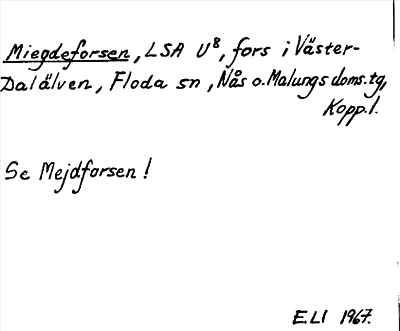 Miegdeforsen, LSA U⁸, fors i Väster-
Dalälven, Floda sn, Nås o. Malungs doms.tg,
Kopp.l.
Se Mejdforsen!
E.LI 1967.